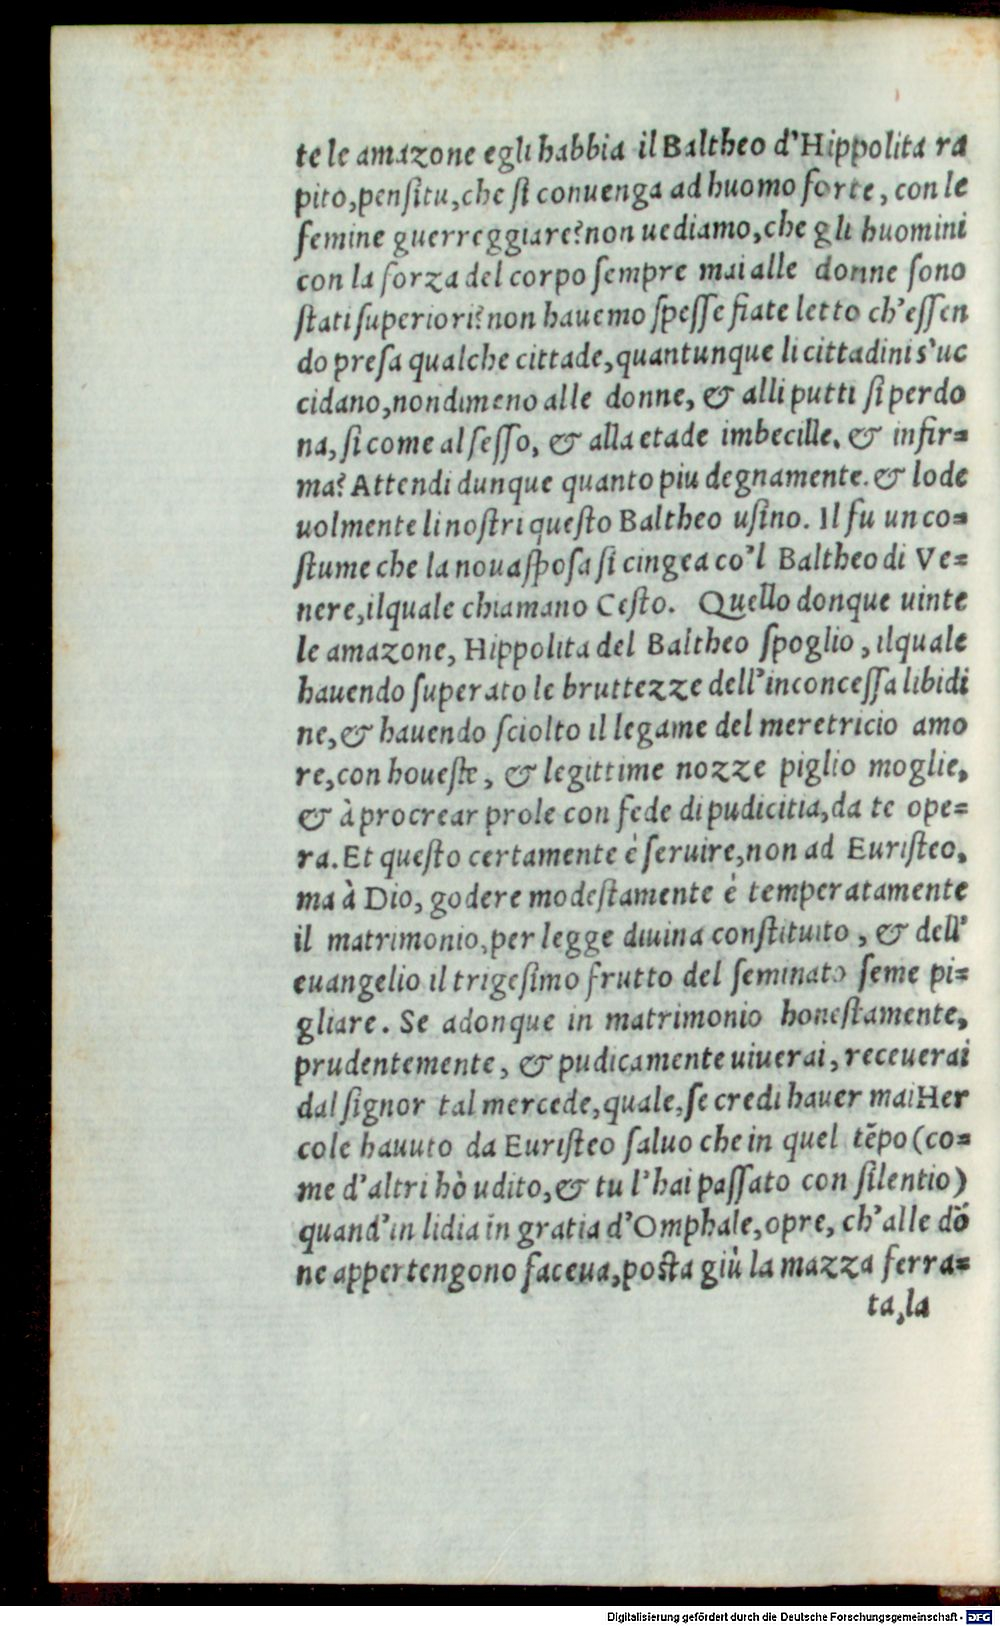 te le amazone egli habbia il Baltheo d'Hippolita ra
pito, pensi tu, che si conuenga ad huomo forte, con le
femine guerreggiare? non uediamo, che gli huomini
con la forza del corpo sempre mai alle donne sono
stati superiori? non hauemo spesse fiate letto ch'essen
do presa qualche cittade, quantunque li cittadini s'uc
cidano, nondimeno alle donne, & alli putti si perdo
na, si come al sesso, & alla etade imbecille, & infir=
ma? Attendi dunque quanto piu degnamente. & lode
uolmente li nostri questo Baltheo usino. Il fu un co=
stume che la noua sposa si cingea co'l Baltheo di Ve=
nere, ilquale chiamano Cesto. Quello donque uinte
le amazone, Hippolita del Baltheo spoglio, ilquale
hauendo superato le bruttezze dell'inconcessa libidi
ne, & hauendo sciolto il legame del meretricio amo
re, con houeste, & legittime nozze piglio moglie,
& à procrear prole con fede di pudicitia, da te ope=
ra. Et questo certamente è seruire, non ad Euristeo,
ma à Dio, godere modestamente è temperatamente
il matrimonio, per legge diuina constituito, & dell'
euangelio il trigesimo frutto del seminato seme pi=
gliare. Se adonque in matrimonio honestamente,
prudentemente, & pudicamente uiuerai, receuerai
dal signor tal mercede, quale, se credi hauer mai Her
cole hauuto da Euristeo saluo che in quel tēpo (co=
me d'altri hò udito, & tu l'hai passato con silentio)
quand'in lidia in gratia d'Omphale, opre, ch'alle dō
ne appertengono faceua, posta giù la mazza ferra=
ta, la
Digitalisierung gefördert durch die Deutsche Forschungsgemeinschaft - DFG